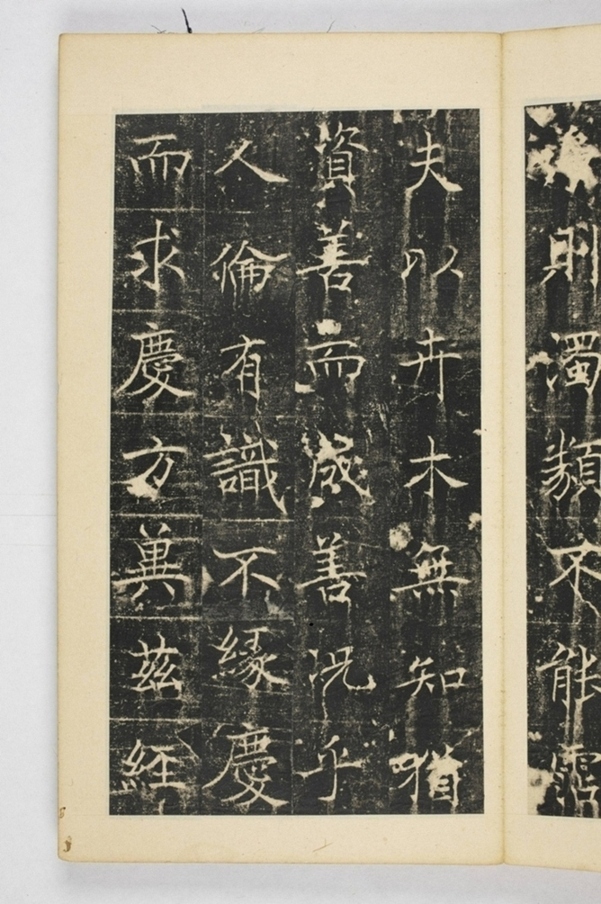 則濁類不能霑
夫以卉木無知猶
資善而成善況乎
人倫有識不緣慶
而求慶方冀茲經